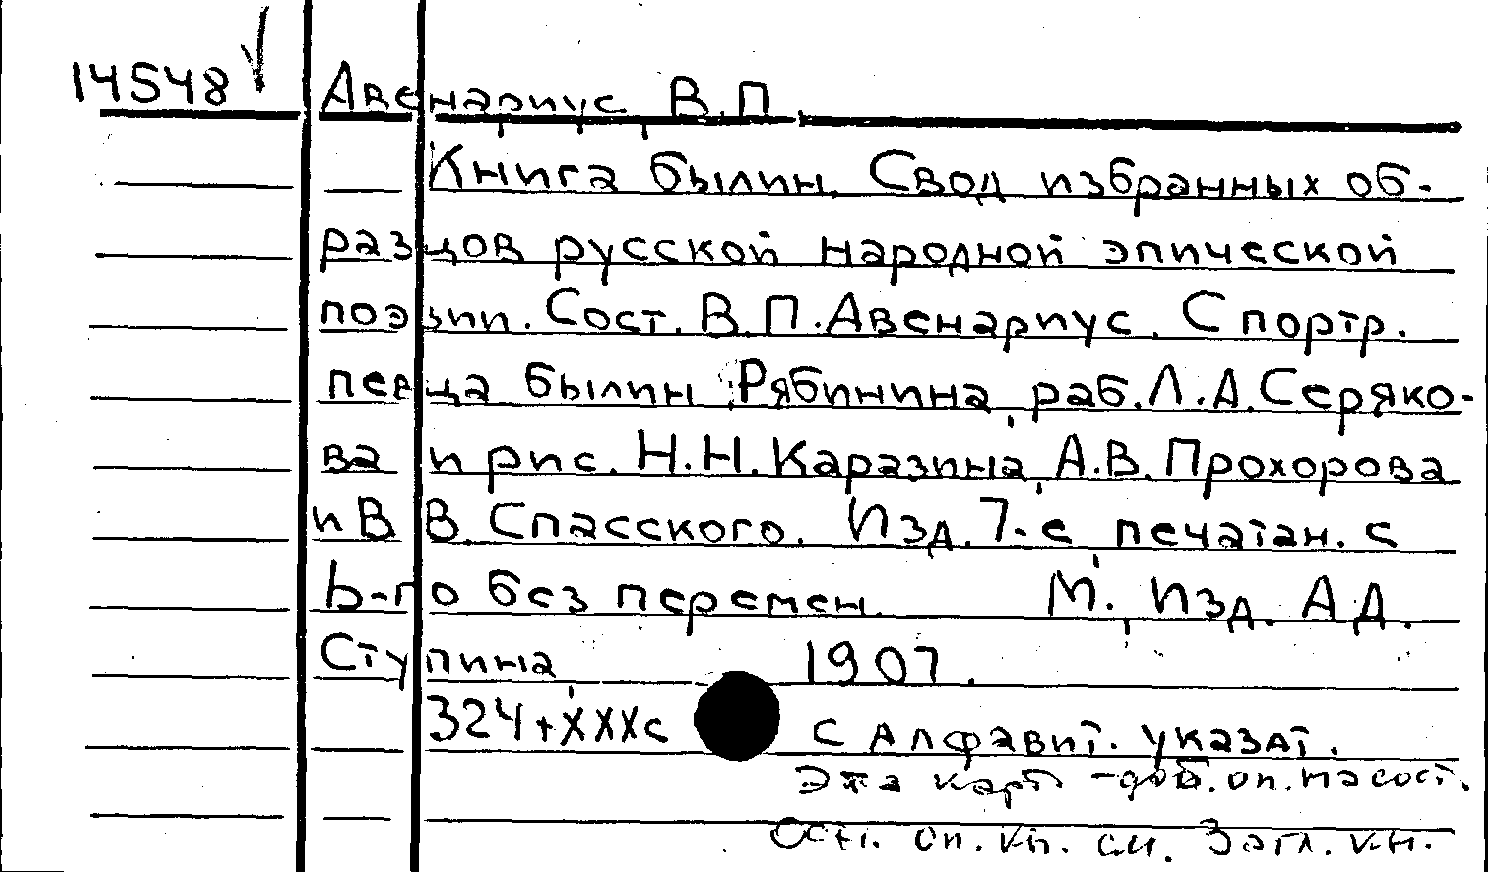 14548 Авенариус, В.П.
Книга былин. Свод избранных об-
разцов русской народной эпической
поэзии. Сост. В.П.Авенариус. С портр.
певца былин Рябинина, раб.Л.А.Серяко-
ва и рис. Н.Н.Каразина, А.В.Прохорова
и В.В.Спасского. Изд.7-е, печатан. с
6-го без перемен. М., Изд. А.Д.
Ступина, 1907.
324+XXXс С Алфавит. указат.
Эта карт -доб.оп.на сост.
Осн. оп. кн. см. Загл. кн.